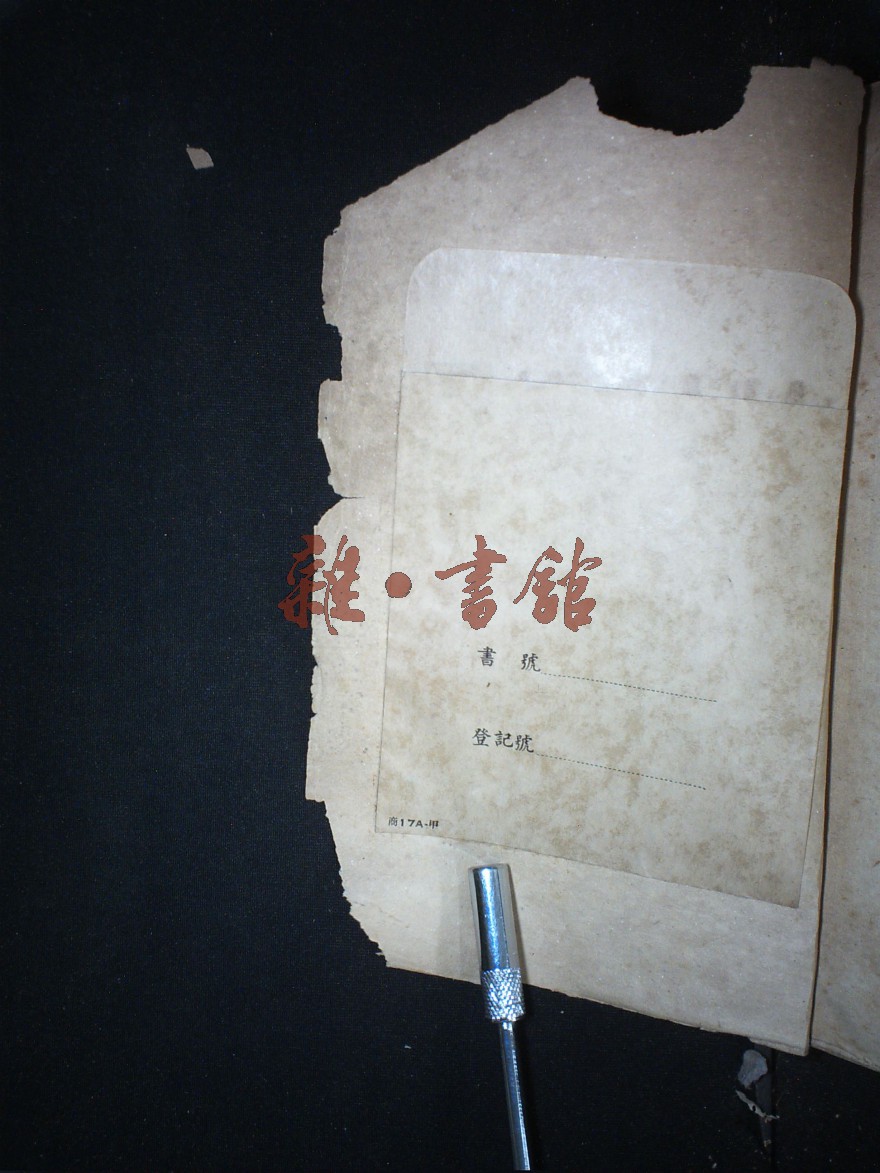 雜·書館
書 號
登記號
商17A-甲